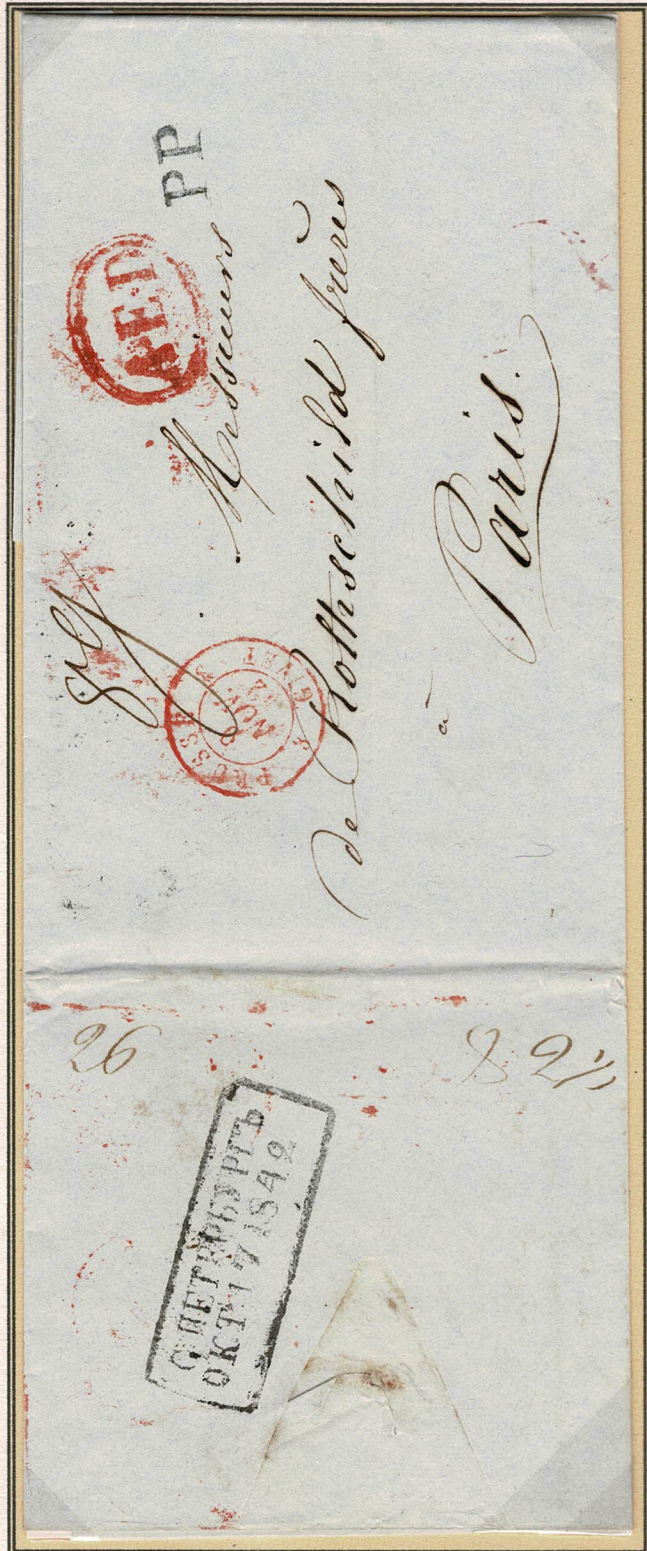 PP
A.E.D
Messieurs
de Rothschild frères
à
Paris.
PRUSSE
8
NOV.
42
GIVET
26
С.ПЕТЕРБУРГЪ
ОКТ 17 1842